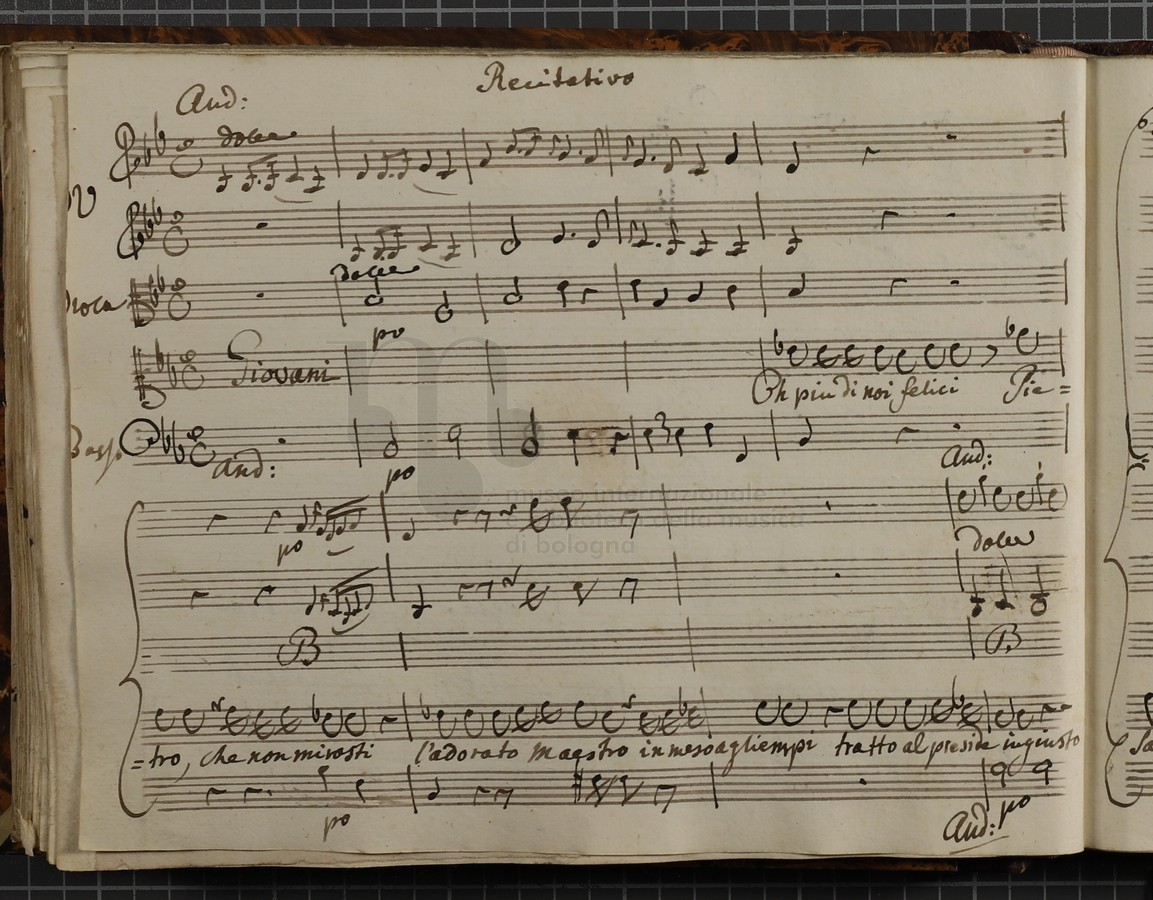 Recitativo
And:
dolce
V
dolce
po
Giovani
Oh piu di noi felici Pie=
Basso
And:
po
And:
museo internazionale
e biblioteca della musica
di bologna
po
dolce
B
B
=tro, che non mirasti l'adorato Maestro in meso agliempi tratto al preside ingiusto
po
po
And: